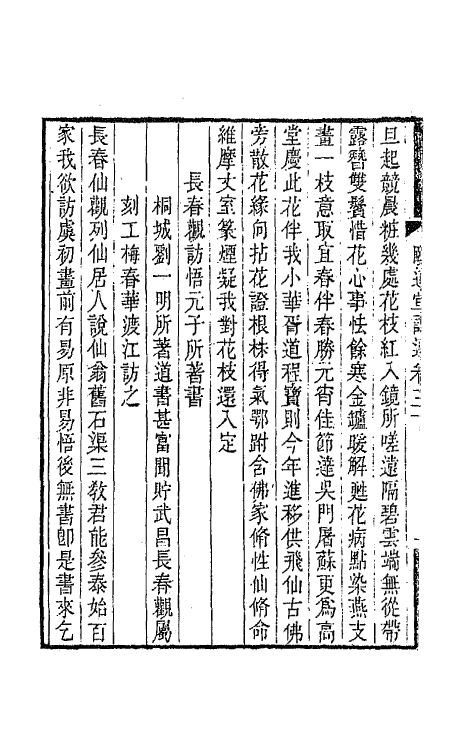 旦起競晨粧幾處花枝紅入鏡所嗟遠隔碧雲端無從帶
露簪雙鬢惜花心事怯餘寒金鑪暖解甦花病點染燕支
畫一枝意取宜春伴春勝元宵佳節達吳門屠蘇更爲高
堂慶此花伴我小華胥道程寶則今年進移供飛仙古佛
旁散花緣向拈花證根株得氣鄂跗含佛家脩性仙脩命
維摩丈室篆煙疑我對花枝還入定
長春觀訪悟元子所著書
桐城劉一明所著道書甚富聞貯武昌長春觀屬
刻工梅春華渡江訪之
長春仙觀列仙居人說仙翁舊石渠三敎君能參泰始百
家我欲訪虞初畫前有易原非易悟後無書卽是書來乞